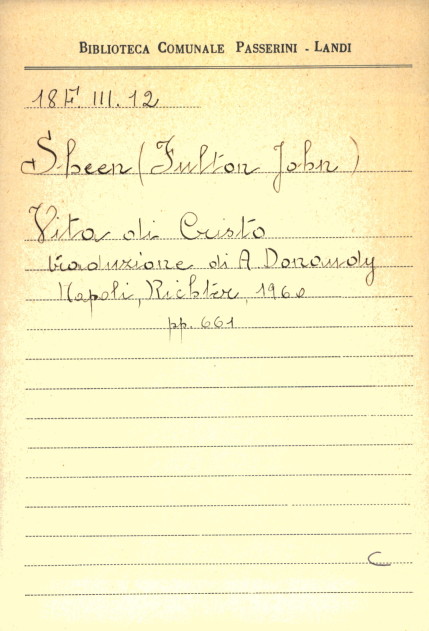 BIBLIOTECA COMUNALE PASSERINI - LANDI
18F. III. 12
Sheen (Fulton John)
Vita di Cristo
traduzione di A Donaudy
Napoli, Richter, 1960
pp. 661
C